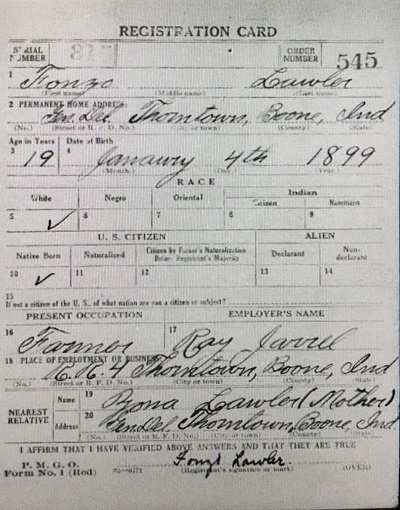 REGISTRATION CARD
SERIAL NUMBER 817 ORDER NUMBER 545
1 Fonzo Lawler
(First name) (Middle name) (Last name)
2 PERMANENT HOME ADDRESS:
Gen Del Thorntown, Boone, Ind
(No.) (Street or R. F. D. No.) (City or town) (County) (State)
Age in Years Date of Birth
3 19 4 January 4th 1899
(Month.) (Day.) (Year.)
RACE
White Negro Oriental Indian
Citizen Noncitizen
5 ✓ 6 7 8 9
U. S. CITIZEN ALIEN
Native Born Naturalized Citizen by Father's Naturalization Before Registrant's Majority Declarant Non-declarant
10 ✓ 11 12 13 14
15
If not a citizen of the U. S., of what nation are you a citizen or subject?
PRESENT OCCUPATION EMPLOYER'S NAME
16 Farmer 17 Ray Jarrel
18 PLACE OF EMPLOYMENT OR BUSINESS:
R. R. 4 Thorntown, Boone, Ind
(No.) (Street or R. F. D. No.) (City or town) (County) (State)
NEAREST RELATIVE Name 19 Zona Lawler (Mother)
Address 20 Gen Del Thorntown, Boone, Ind.
(No.) (Street or R. F. D. No.) (City or town) (County) (State)
I AFFIRM THAT I HAVE VERIFIED ABOVE ANSWERS AND THAT THEY ARE TRUE
P. M. G. O.
Form No. 1 (Red) Fonzo Lawler
(Registrant's signature or mark) (OVER)